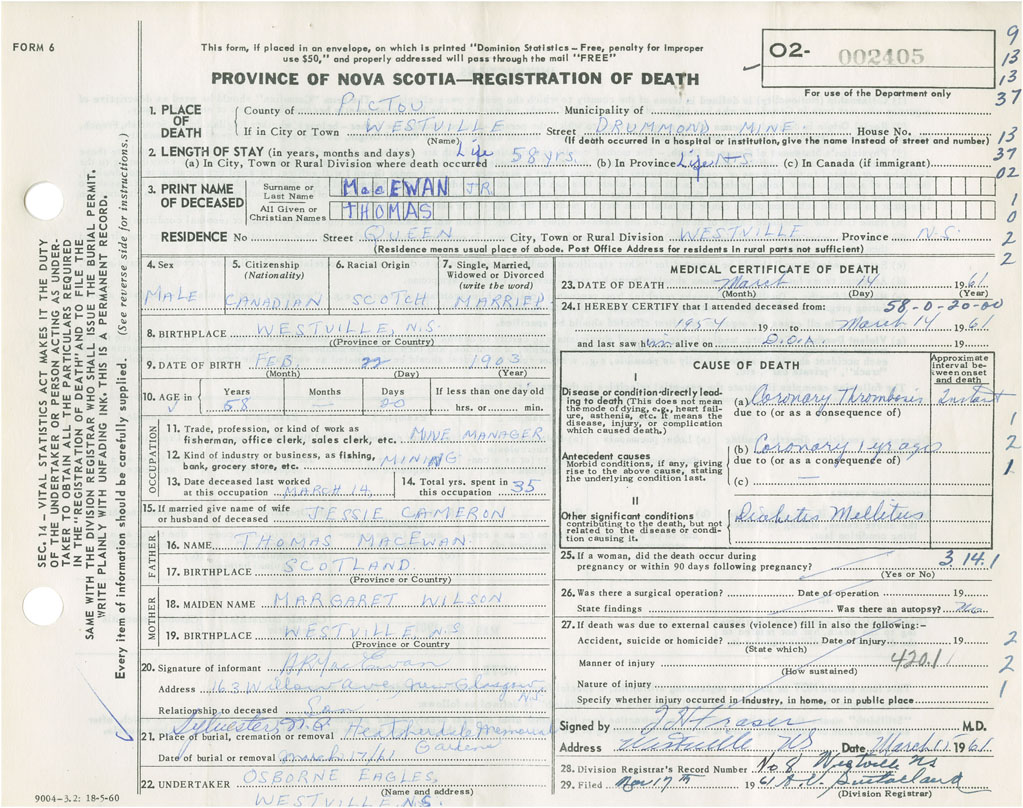 FORM 6
This form, if placed in an envelope, on which is printed "Dominion Statistics – Free, penalty for improper
use $50," and properly addressed will pass through the mail "FREE"
PROVINCE OF NOVA SCOTIA—REGISTRATION OF DEATH
O2- 002405
For use of the Department only
9
13
13
37
13
37
02
1
0
2
2
SEC. 14 – VITAL STATISTICS ACT MAKES IT THE DUTY
OF THE UNDERTAKER OR PERSON ACTING AS UNDER-
TAKER TO OBTAIN ALL THE PARTICULARS REQUIRED
IN THE "REGISTRATION OF DEATH" AND TO FILE THE
SAME WITH THE DIVISION REGISTRAR WHO SHALL ISSUE THE BURIAL PERMIT.
WRITE PLAINLY WITH UNFADING INK. THIS IS A PERMANENT RECORD.
Every item of information should be carefully supplied. (See reverse side for instructions.)
1. PLACE OF DEATH
County of PICTOU Municipality of
If in City or Town WESTVILLE Street DRUMMOND MINE House No.
(Name) (If death occurred in a hospital or institution, give the name instead of street and number)
2. LENGTH OF STAY (in years, months and days) Life
(a) In City, Town or Rural Division where death occurred 58 yrs. (b) In Province Life NS (c) In Canada (if immigrant)
3. PRINT NAME OF DECEASED
Surname or Last Name MacEWAN JR
All Given or Christian Names THOMAS
RESIDENCE No Street QUEEN City, Town or Rural Division WESTVILLE Province N.S.
(Residence means usual place of abode. Post Office Address for residents in rural parts not sufficient)
4. Sex
MALE
5. Citizenship (Nationality)
CANADIAN
6. Racial Origin
SCOTCH
7. Single, Married, Widowed or Divorced (write the word)
MARRIED
8. BIRTHPLACE WESTVILLE, N.S.
(Province or Country)
9. DATE OF BIRTH FEB 22 1903
(Month) (Day) (Year)
10. AGE in
Years Months Days If less than one day old
58 — 20 hrs. or min.
OCCUPATION
11. Trade, profession, or kind of work as
fisherman, office clerk, sales clerk, etc. MINE MANAGER
12. Kind of industry or business, as fishing,
bank, grocery store, etc. MINING
13. Date deceased last worked
at this occupation MARCH 14
14. Total yrs. spent in
this occupation 35
15. If married give name of wife
or husband of deceased JESSIE CAMERON
FATHER
16. NAME THOMAS MACEWAN
17. BIRTHPLACE SCOTLAND
(Province or Country)
MOTHER
18. MAIDEN NAME MARGARET WILSON
19. BIRTHPLACE WESTVILLE, N.S.
(Province or Country)
20. Signature of informant
Address 163 Willow Ave, New Glasgow, N.S.
Relationship to deceased Son
Sylvester, N.S.
21. Place of burial, cremation or removal Heatherdale Memorial Gardens
Date of burial or removal March 17/61
22. UNDERTAKER OSBORNE EAGLES,
(Name and address)
WESTVILLE, N.S.
9004-3.2: 18-5-60
MEDICAL CERTIFICATE OF DEATH
23. DATE OF DEATH March 14 1961
(Month) (Day) (Year)
24. I HEREBY CERTIFY that I attended deceased from: 58-0-20-00
1954 19 to March 14 1961
and last saw him alive on D.O.A. 19
CAUSE OF DEATH
Approximate interval between onset and death
I
Disease or condition directly lead-
ing to death (This does not mean
the mode of dying, e.g., heart fail-
ure, asthenia, etc. It means the
disease, injury, or complication
which caused death.)
(a) Coronary Thrombosis Instant
due to (or as a consequence of)
Antecedent causes
Morbid conditions, if any, giving
rise to the above cause, stating
the underlying condition last.
(b) Coronary 1 yr ago
due to (or as a consequence of)
(c) —
II
Other significant conditions
contributing to the death, but not
related to the disease or condi-
tion causing it.
Diabetis Mellitus
1
2
1
25. If a woman, did the death occur during
pregnancy or within 90 days following pregnancy? 3.14.1
(Yes or No)
26. Was there a surgical operation? Date of operation 19
State findings Was there an autopsy? No
27. If death was due to external causes (violence) fill in also the following:–
Accident, suicide or homicide? Date of injury 19
(State which)
Manner of injury 420.1
(How sustained)
Nature of injury
Specify whether injury occurred in industry, in home, or in public place
2
2
1
Signed by J H Fraser M.D.
Address Westville NS Date March 15 1961
28. Division Registrar's Record Number No 8 Westville NS
29. Filed 17th 1961
(Division Registrar)